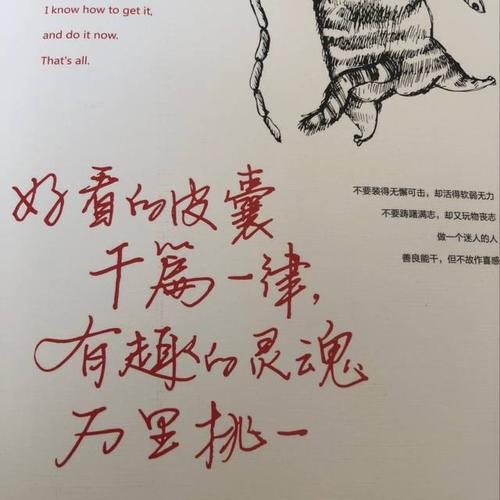 I know how to get it,
and do it now.
That's all.
好看的皮囊
千篇一律，
有趣的灵魂
万里挑一
不要装得无懈可击，却活得软弱无力
不要踌躇满志，却又玩物丧志
做一个迷人的人
善良能干，但不故作喜感